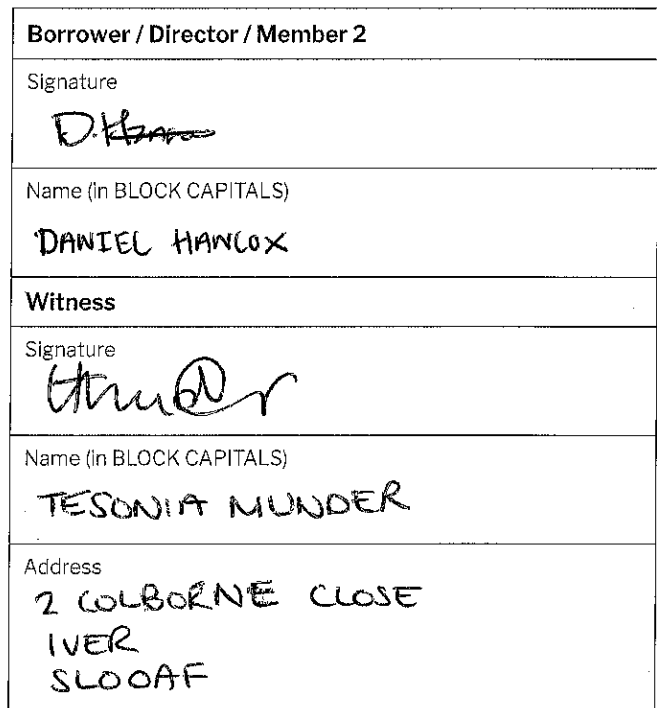 Borrower / Director / Member 2
Signature
Name (in BLOCK CAPITALS)
DANIEL HANCOX
Witness
Signature
Name (in BLOCK CAPITALS)
TESONIA MUNDER
Address
2 COLBORNE CLOSE
IVER
SLOOAF